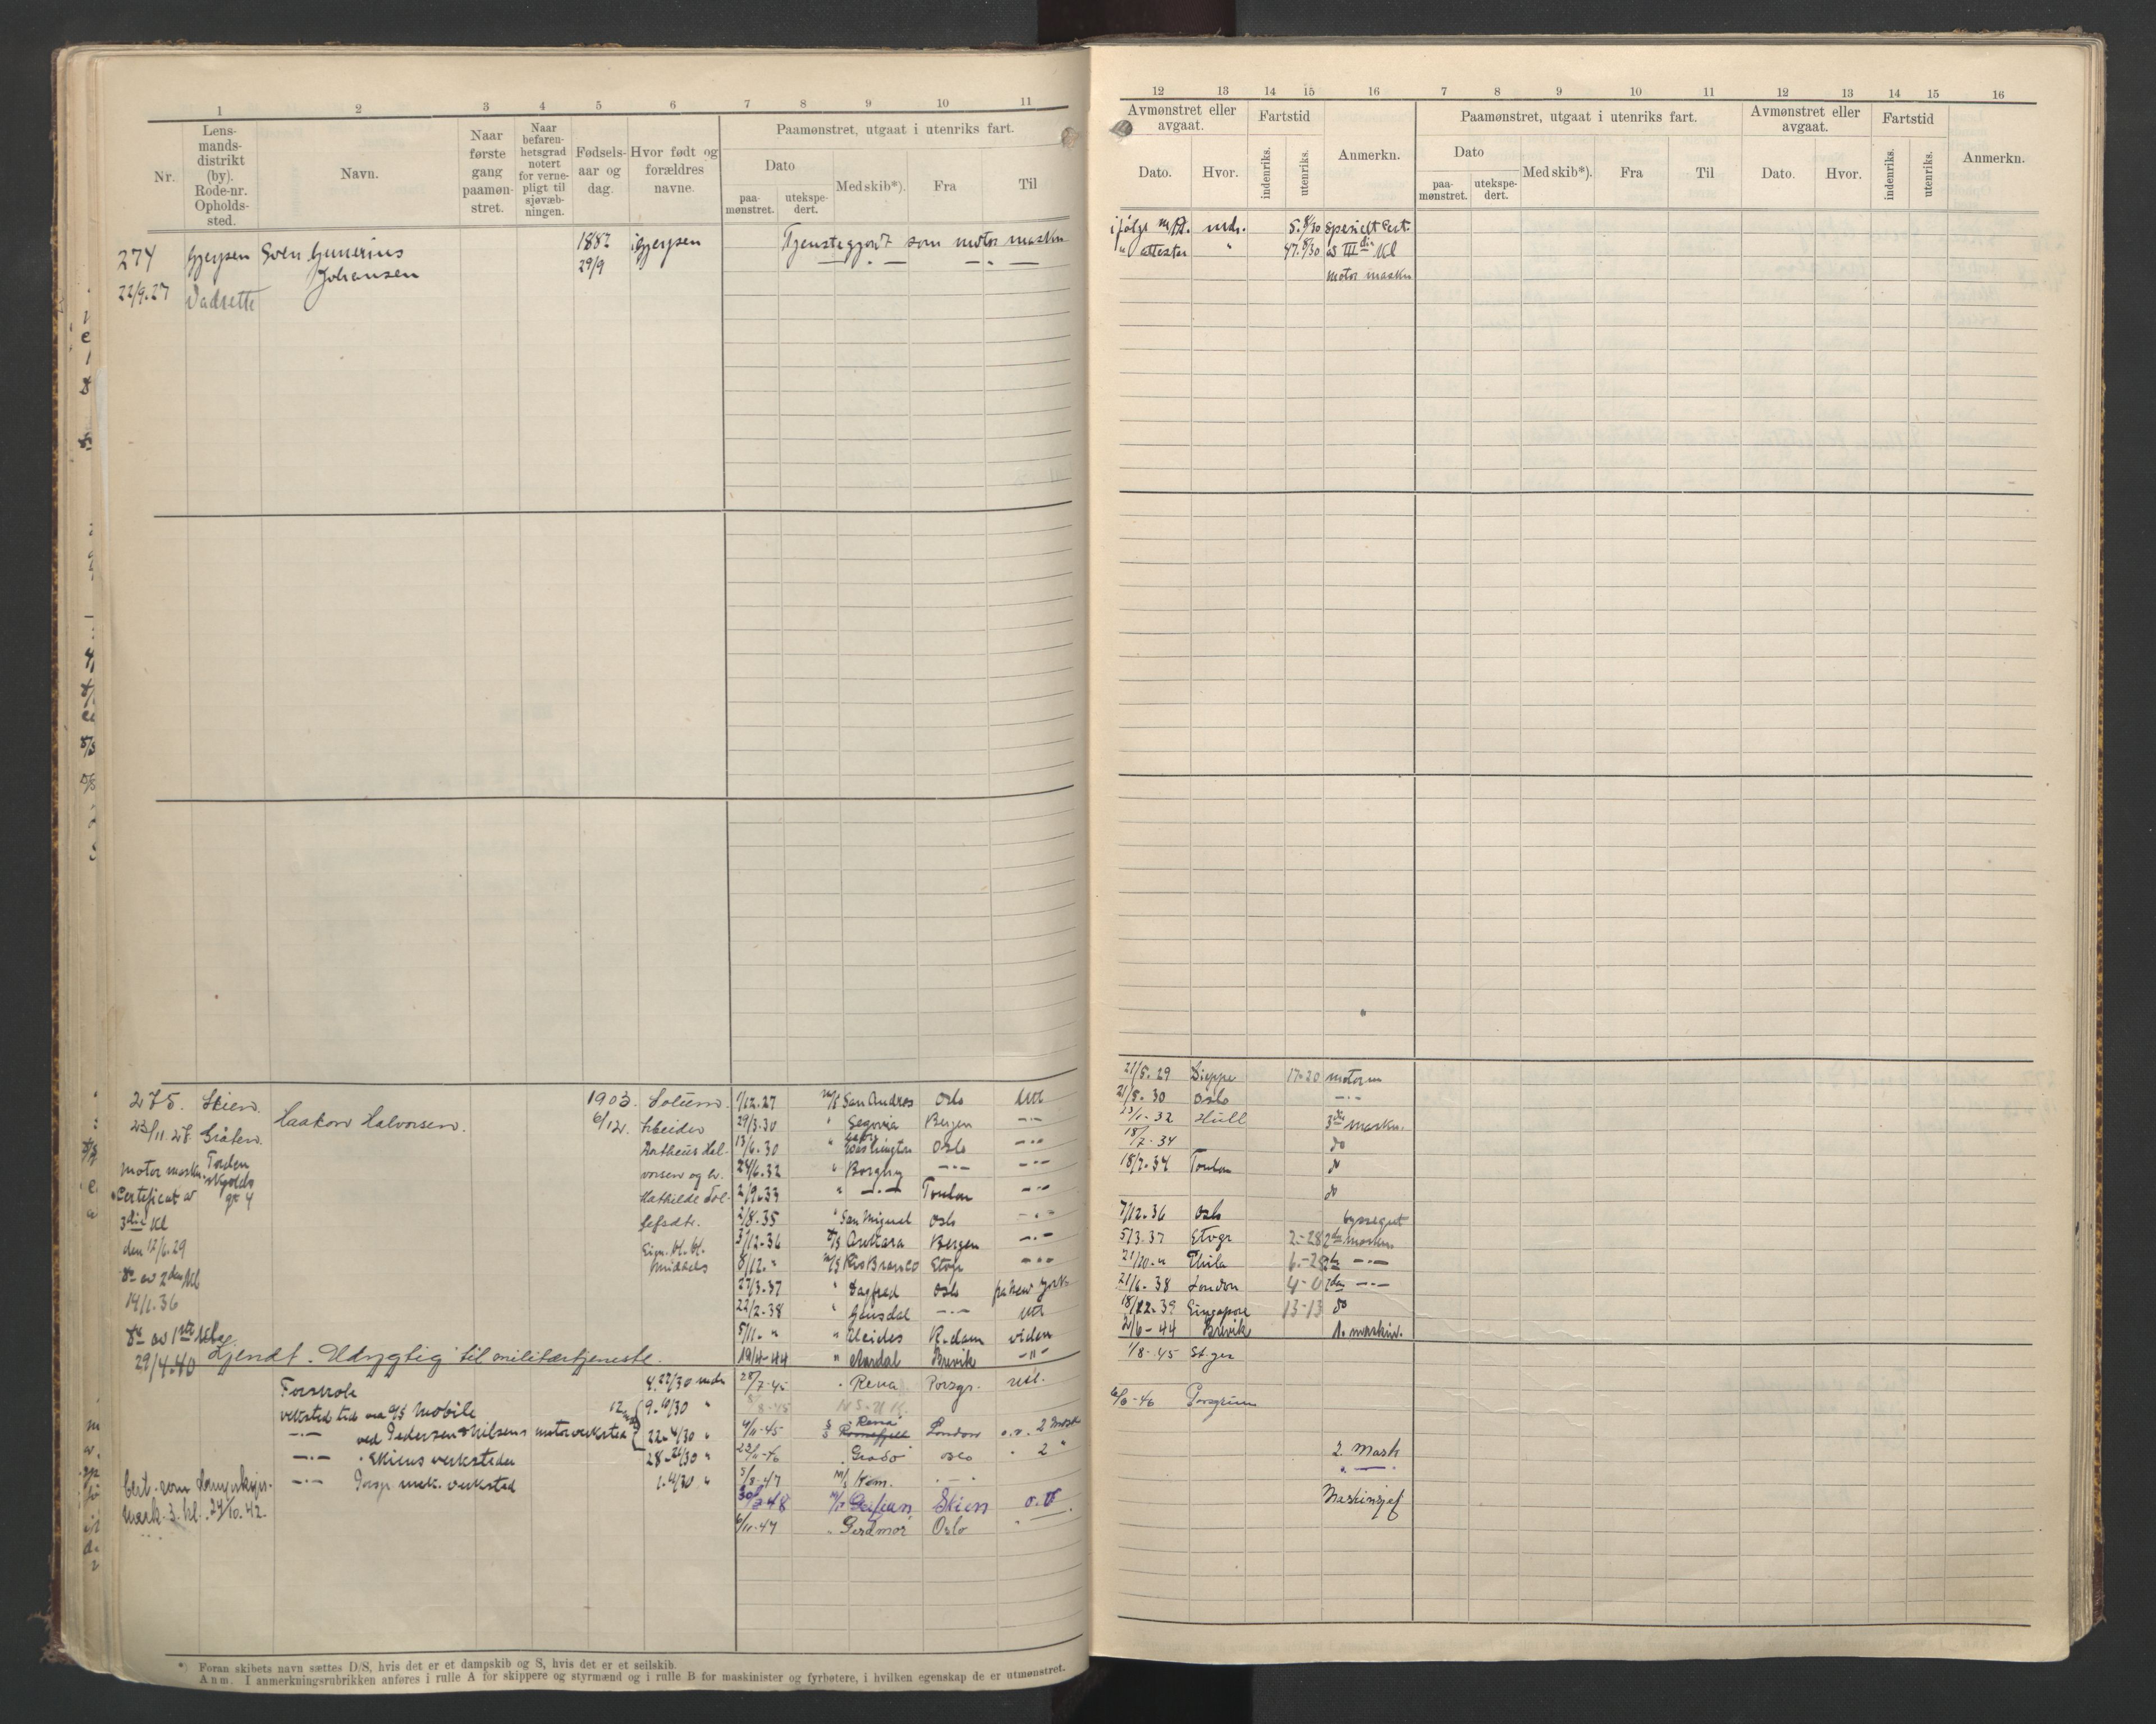 1 2 3 4 5 6 7 8 9 10 11
Nr.
Lens-
mands-
distrikt
(by).
Rode-nr.
Opholds-
sted.
Navn.
Naar
første
gang
paamøn-
stret.
Naar
befaren-
hetsgrad
notert
for verne-
pligt til
sjøvæb-
ningen.
Fødsels-
aar og
dag.
Hvor født og
forældres
navne.
Paamønstret, utgaat i utenriks fart.
Dato
paa-
mønstret.
utekspe-
dert.
Med skib*).
Fra
Til
274 Gjerpen Sven Gunerius 1882 i Gjerpen Tjenstegjort som motor maskn
Johansen 29/9
22/9.27
275. Skien. 1903. Solum. 1/12.27 m/s San Andres Oslo Utl
23/11.28 Gråten. Haakon Halvorsen. 6/12. Arbeider 29/3.30 " Segovia Bergen —"—
13/6.30 " Washington Oslo —"—
Motor maskn. Torden 24/6.32 " Borgny —"— —"—
Certificat av gt 4 Mathilde 2/9.33 " —"— Toulon —"—
3die Kl 2/8.35 " San Miguel Oslo —"—
den 12/6.29 3/12.36 Bergen —"—
do av 2den Kl 8/12." m/s Rio Branco —"—
14/1.36 27/3.37 " Dagfred Oslo New York
22/2.38 " Gausdal —"— Utl
do av 1ste 5/11." " Alcides R.dam viden
29/4.40 Udygtig til militærtjeneste. 19/4-44 " Aardal Brevik —"—
Forskole 4.22/30 28/7-45 " Rena Porsgr. utl.
verksted tid Mobile 9.10/30 "
—"— ved Pedersen & Nilsens motorverksted 22.4/30 " 4/11-45 Rena London o.v. 2 mask
—"— Skiens verksteder 28.26/30 " Oslo " 2 "
Cert. som Lampskips- —"— Porsgr mek. verksted 1.4/30 "
Mask. 3. kl. 24/10.42.
m/s Skien o.v.
6/11.47 " Gerdmor Oslo "
*) Foran skibets navn sættes D/S, hvis det er et dampskib og S, hvis det er et seilskib.
Anm. I anmerkningsrubrikken anføres i rulle A for skippere og styrmænd og i rulle B for maskinister og fyrbøtere, i hvilken egenskap de er utmønstret.
12 13 14 15 16 7 8 9 10 11 12 13 14 15 16
Avmønstret eller
avgaat.
Dato.
Hvor.
Fartstid
indenriks.
utenriks.
Anmerkn.
Paamønstret, utgaat i utenriks fart.
Dato
paa-
mønstret.
utekspe-
dert.
Med skib*).
Fra
Til
Avmønstret eller
avgaat.
Dato.
Hvor.
Fartstid
indenriks.
utenriks.
Anmerkn.
ifølge 5.8/30 Spesielt Sert.
" attester " 47.8/30 III die Kl
motor maskn
21/5.29 Dieppe 17-20 motorm
21/5.30 Oslo —"—
23/1-32 Hull 3die maskn.
18/7-34 do
18/7.34 Toulon do
do
7/12.36 Oslo byssegut
5/3.37 2-28 2den maskn.
21/10." Phila 6-28 2den —"—
21/6.38 London 4-0 2den —"—
18/12.39 Singapore 13-13 do
2/6-44 Brevik 1. maskin.
1/8-45
6/6-46 Porsgrunn
2. Mask
" —"—
Maskinsjef